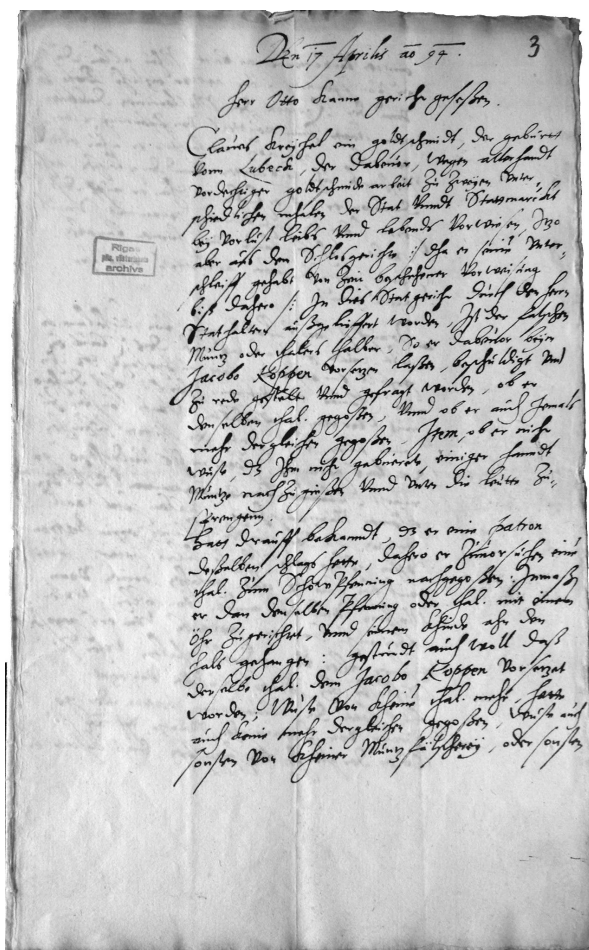 Den 17 Aprilis ao 94.
3
Herr Otto Kanne gerichte geseßen.
Claues Kreychel ein goldtschmidt, der gebürt
vonn Lubeck, der dabeuor, wegen allerhandt
vordechtiger goldtschmide arbeit zu zweyen Vnter-
schiedtlichen mahlen der Stat Vnndt Statmarckt
bey vorlust leibs Vnnd lebends Vorwiesen, Itzo
aber aus dem Schlosgerichte :/ da er seine Vnter-
schleiff gehabt von Zeit beschehener Vorweisung
biß dahero :/ In dies Statgericht durch den herrn
Stathalter außgelieffert worden, Ist der falschen
Müntz oder thalers halber, So er dabeuor beim
Jacobo Koppen Vorsetzen laßen, beschuldigt Vnd
zu rede gestelt Vnnd gefragt worden, ob er
denselben thal. gegoßen, Vnnd ob er auch Jemals
mehr dergleichen gegoßen, Item, ob er nicht
wuste, dz Ihm nicht geburete, einiger handt
Müntze nach zu gießen Vnnd Vnter die leute zu-
sprengenn.
Hatt drauff bekanndt, dz er eine patron
desselben schlags hette, dahero er Zuuorsuchen eine
thal. Zum Schowpfenning nachgegoßen. Inmaßen
er dan denselben Pfenning oder thal. mit einem
Öhr zugerichtet, Vnnd seinem Kinde ahn den
hals gehangen : gestundt auch woll daß
derselbe thal. dem Jacobo Koppen Vorsetzet
worden, Wuste von kheine thal. mehr, hette
auch keine mehr dergleichen gegoßen, wuste auch
sonsten von kheiner Müntzfelscherey, oder sonsten
Rigas
archivs